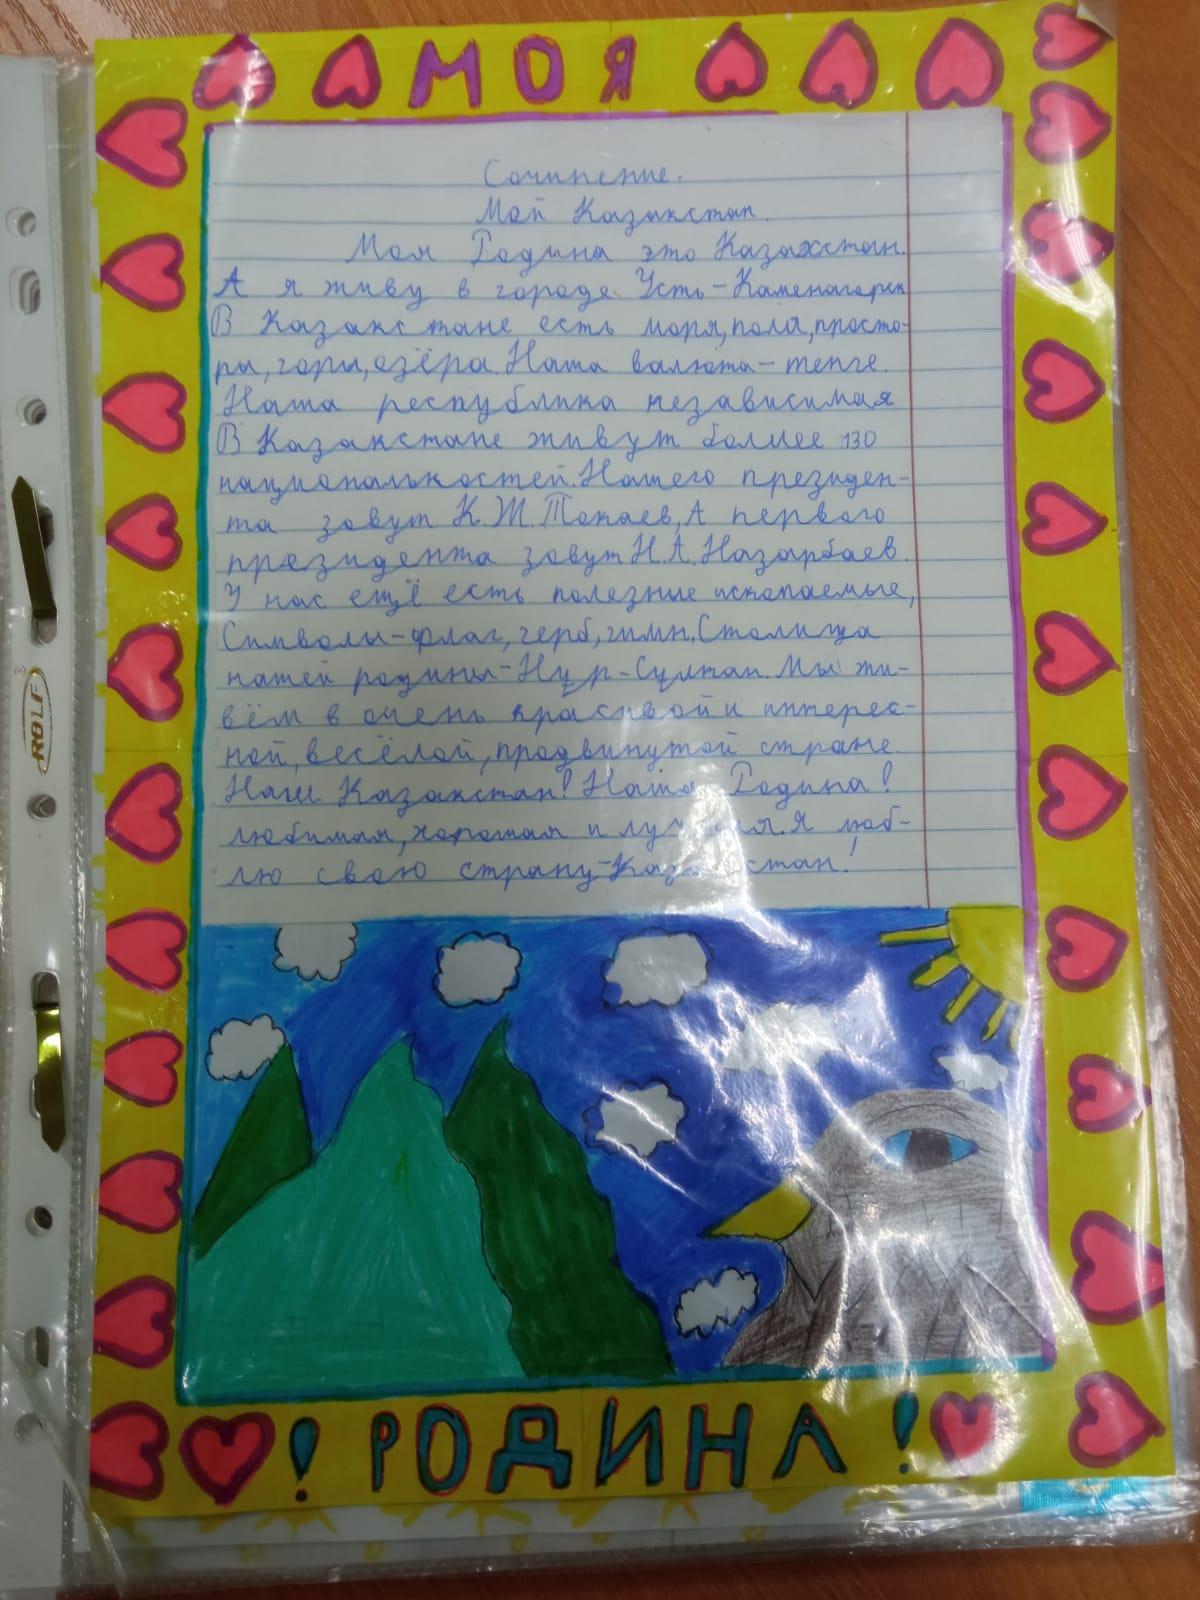 МОЯ
Сочинение.
Мой Казакстан.
Моя Родина это Казахстан.
А я живу в городе Усть-Каменагорск
В Казакстане есть моря, поля, просто-
ры, горы, озёра. Наша валюта - тенге.
Наша республика независимая
В Казакстане живут более 130
национальностей. Нашего президен-
та зовут К. Ж. Токаев, А первого
президента зовут Н. А. Назарбаев.
У нас ещё есть полезные ископаемые,
Символы - флаг, герб, гимн, Столица
нашей родины - Нур-Султан. Мы жи-
вём в очень красивой и интерес-
ной, весёлой, продвинутой стране.
Наш Казакстан! Наша Родина!
любимая, хорошая и лучшая. Я люб-
лю свою страну - Казакстан!
! РОДИНА !
ROLF